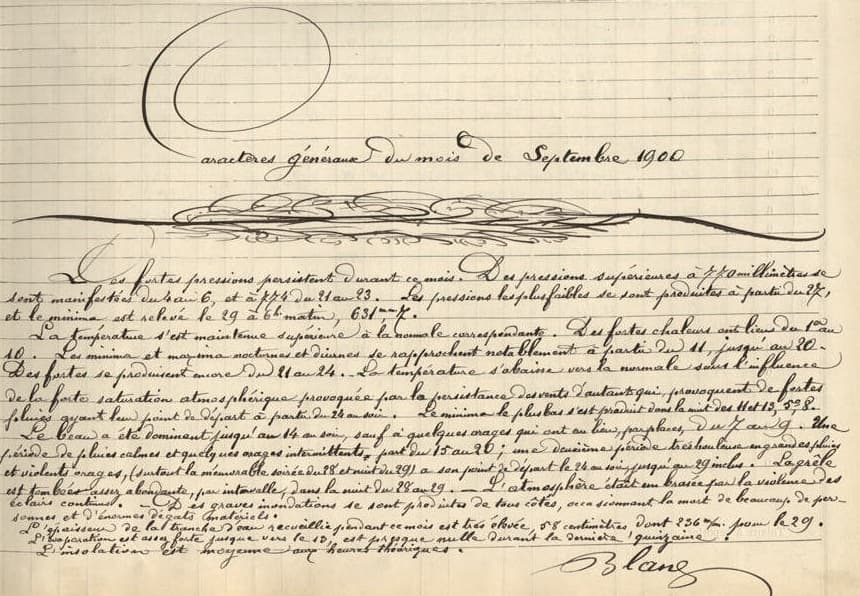 Caractères généraux du mois de Septembre 1900
Les fortes pressions persistent durant ce mois. Des pressions supérieures à 770 millimètres se
sont manifestées du 4 au 6, et à 774 du 21 au 23. Les pressions les plus faibles se sont produites à partir du 27,
et le minima est relevé le 29 à 6h matin, 631mm7.
La température s'est maintenue supérieure à la normale correspondante. Des fortes chaleurs ont lieu du 1er au
10. Les minima et maxima nocturnes et diurnes se rapprochent notablement à partir du 11, jusqu'au 20-
Des fortes se produisent encore du 21 au 24. - La température s'abaisse vers la normale sous l'influence
de la forte saturation atmosphérique provoquée par la persistance des vents d'autant qui, provoquent de fortes
pluies ayant leur point de départ à partir du 24 au soir. Le minima le plus bas s'est produit dans la nuit des 11 et 13, 5°8.
Le beau a été dominent jusqu'au 14 au soir, sauf à quelques orages qui ont eu lieu, par places, du 7 au 9. Une
période de pluies calmes et quelques orages intermittents, part du 15 au 20 ; une deuxième période très houleuse en grandes pluies
et violents orages, (surtout la mémorable soirée du 28 et nuit du 29) a son point de départ le 24 au soir, jusqu'au 29 inclus. La grêle
est tombées assez abondante, par intervalle, dans la nuit du 28 au 29. - L'atmosphère était embrasée par la violence des
éclairs continus. - Des graves inondations se sont produites de tous côtés, occasionnant la mort de beaucoup de per-
sonnes et d'énormes dégats matériels.
L'épaisseur de la tranche d'eau recueillie pendant ce mois est très élevée, 58 centimètres dont 236 m/m pour le 29.
L'évaporation est assez forte jusque vers le 15, est presque nulle durant la dernière quinzaine.
L'insolation est moyenne aux heures théoriques.
Blanc